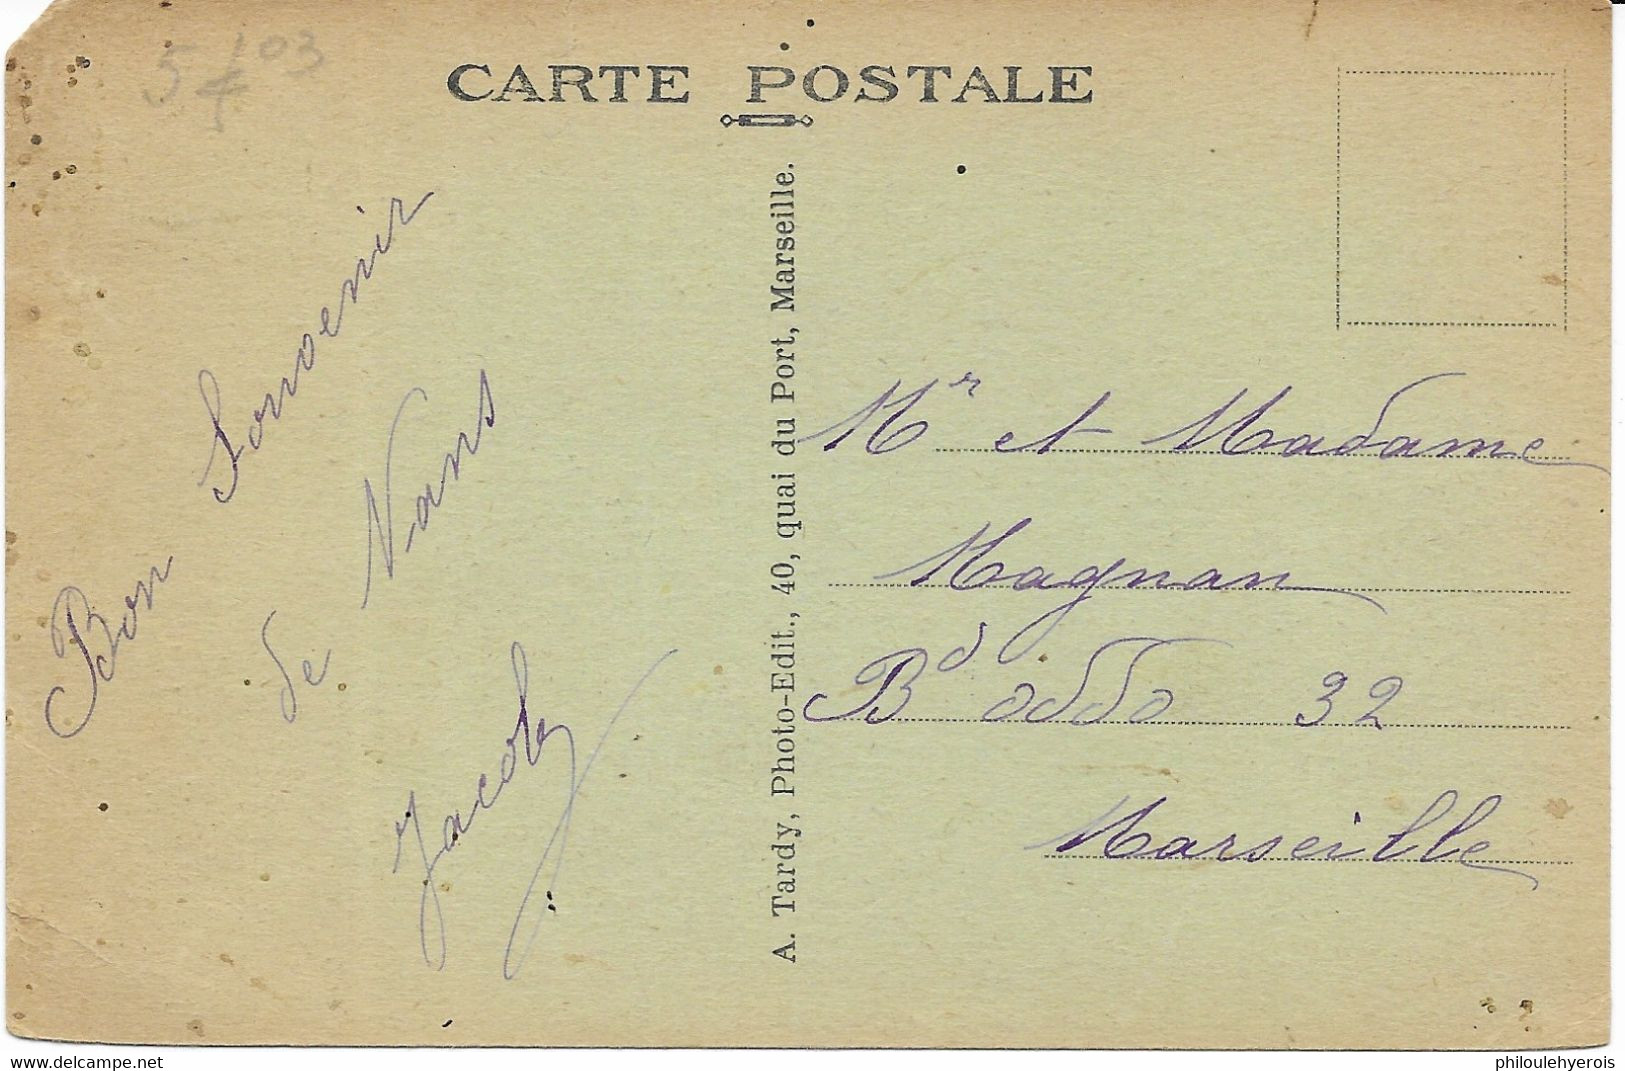 CARTE POSTALE
Bon Souvenir
de Nans
Jacob
A. Tardy, Photo-Edit., 40, quai du Port, Marseille.
Mr et Madame
Magnan
Bd Oddo 32
Marseille
www.delcampe.net
philoulehyerois